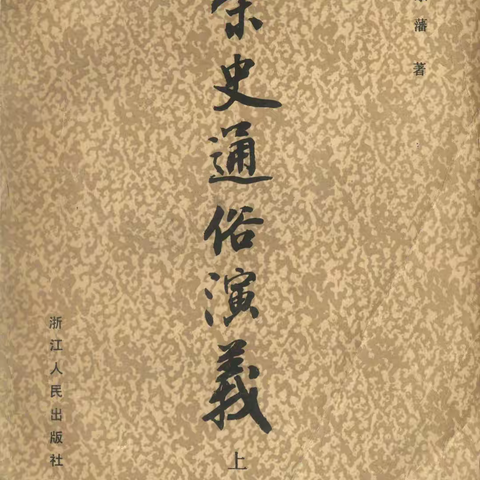 藩 著
宋史通俗演義
上
浙江人民出版社